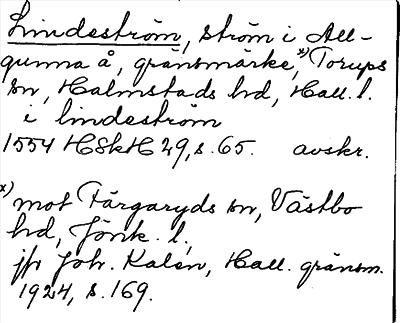 Lindeström, ström i All-
gunna å, gränsmärke,*) Torups
sn, Halmstads hd, Hall. l.
i lindeström
1554 HSkH 29, s. 65. avskr.
*) mot Färgaryds sn, Västbo
hd, Jönk. l,
jfr Joh. Kalén, Hall. gränsm.
1924, s. 169.